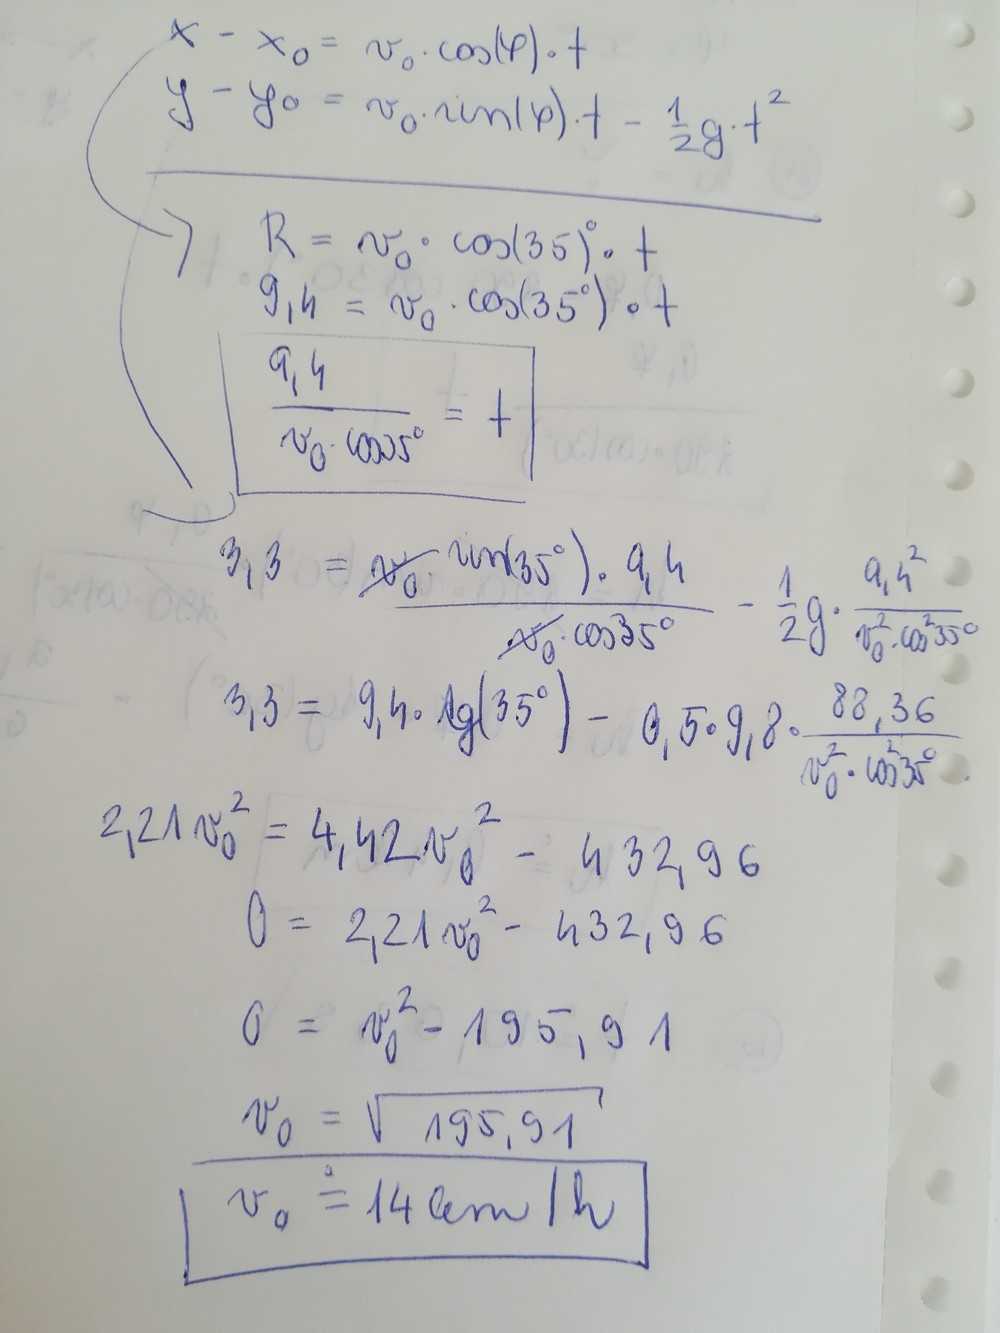 x - x₀ = v₀ · cos(φ) · t
y - y₀ = v₀ · sin(φ) · t - 1/2 g · t²
R = v₀ · cos(35)° · t
9,4 = v₀ · cos(35°) · t
9,4 / v₀ · cos35° = t
3,3 = v₀ sin(35°) · 9,4 / v₀ · cos35° - 1/2 g · 9,4² / v₀² · cos²35°
3,3 = 9,4 · tg(35°) - 0,5 · 9,8 · 88,36 / v₀² · cos²35°
2,21 v₀² = 4,42 v₀² - 432,96
0 = 2,21 v₀² - 432,96
0 = v₀² - 195,91
v₀ = √195,91
v₀ ≐ 14 km/h